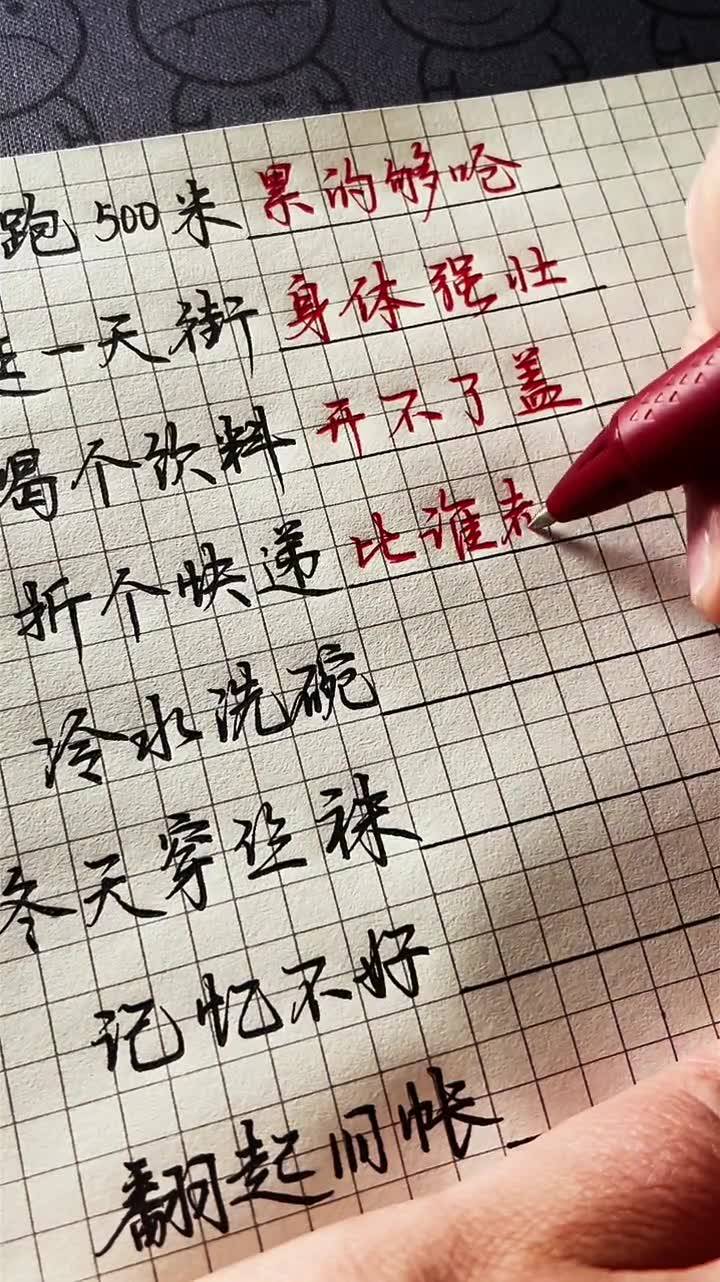 跑500米 累的够呛
一天街 身体强壮
喝个饮料 开不了盖
折个快递 比谁
冷水洗碗
冬天穿丝袜
记忆不好
翻起旧帐